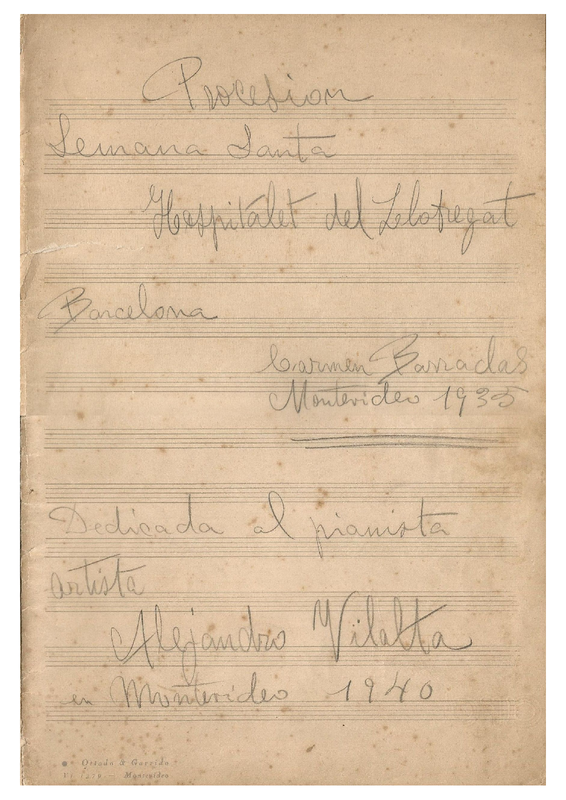 Procesion
Semana Santa
Hospitalet del Llobregat
Barcelona
Carmen Barradas
Montevideo 1935
Dedicada al pianista
artista
Alejandro Vilalta
en Montevideo 1940
Montevideo